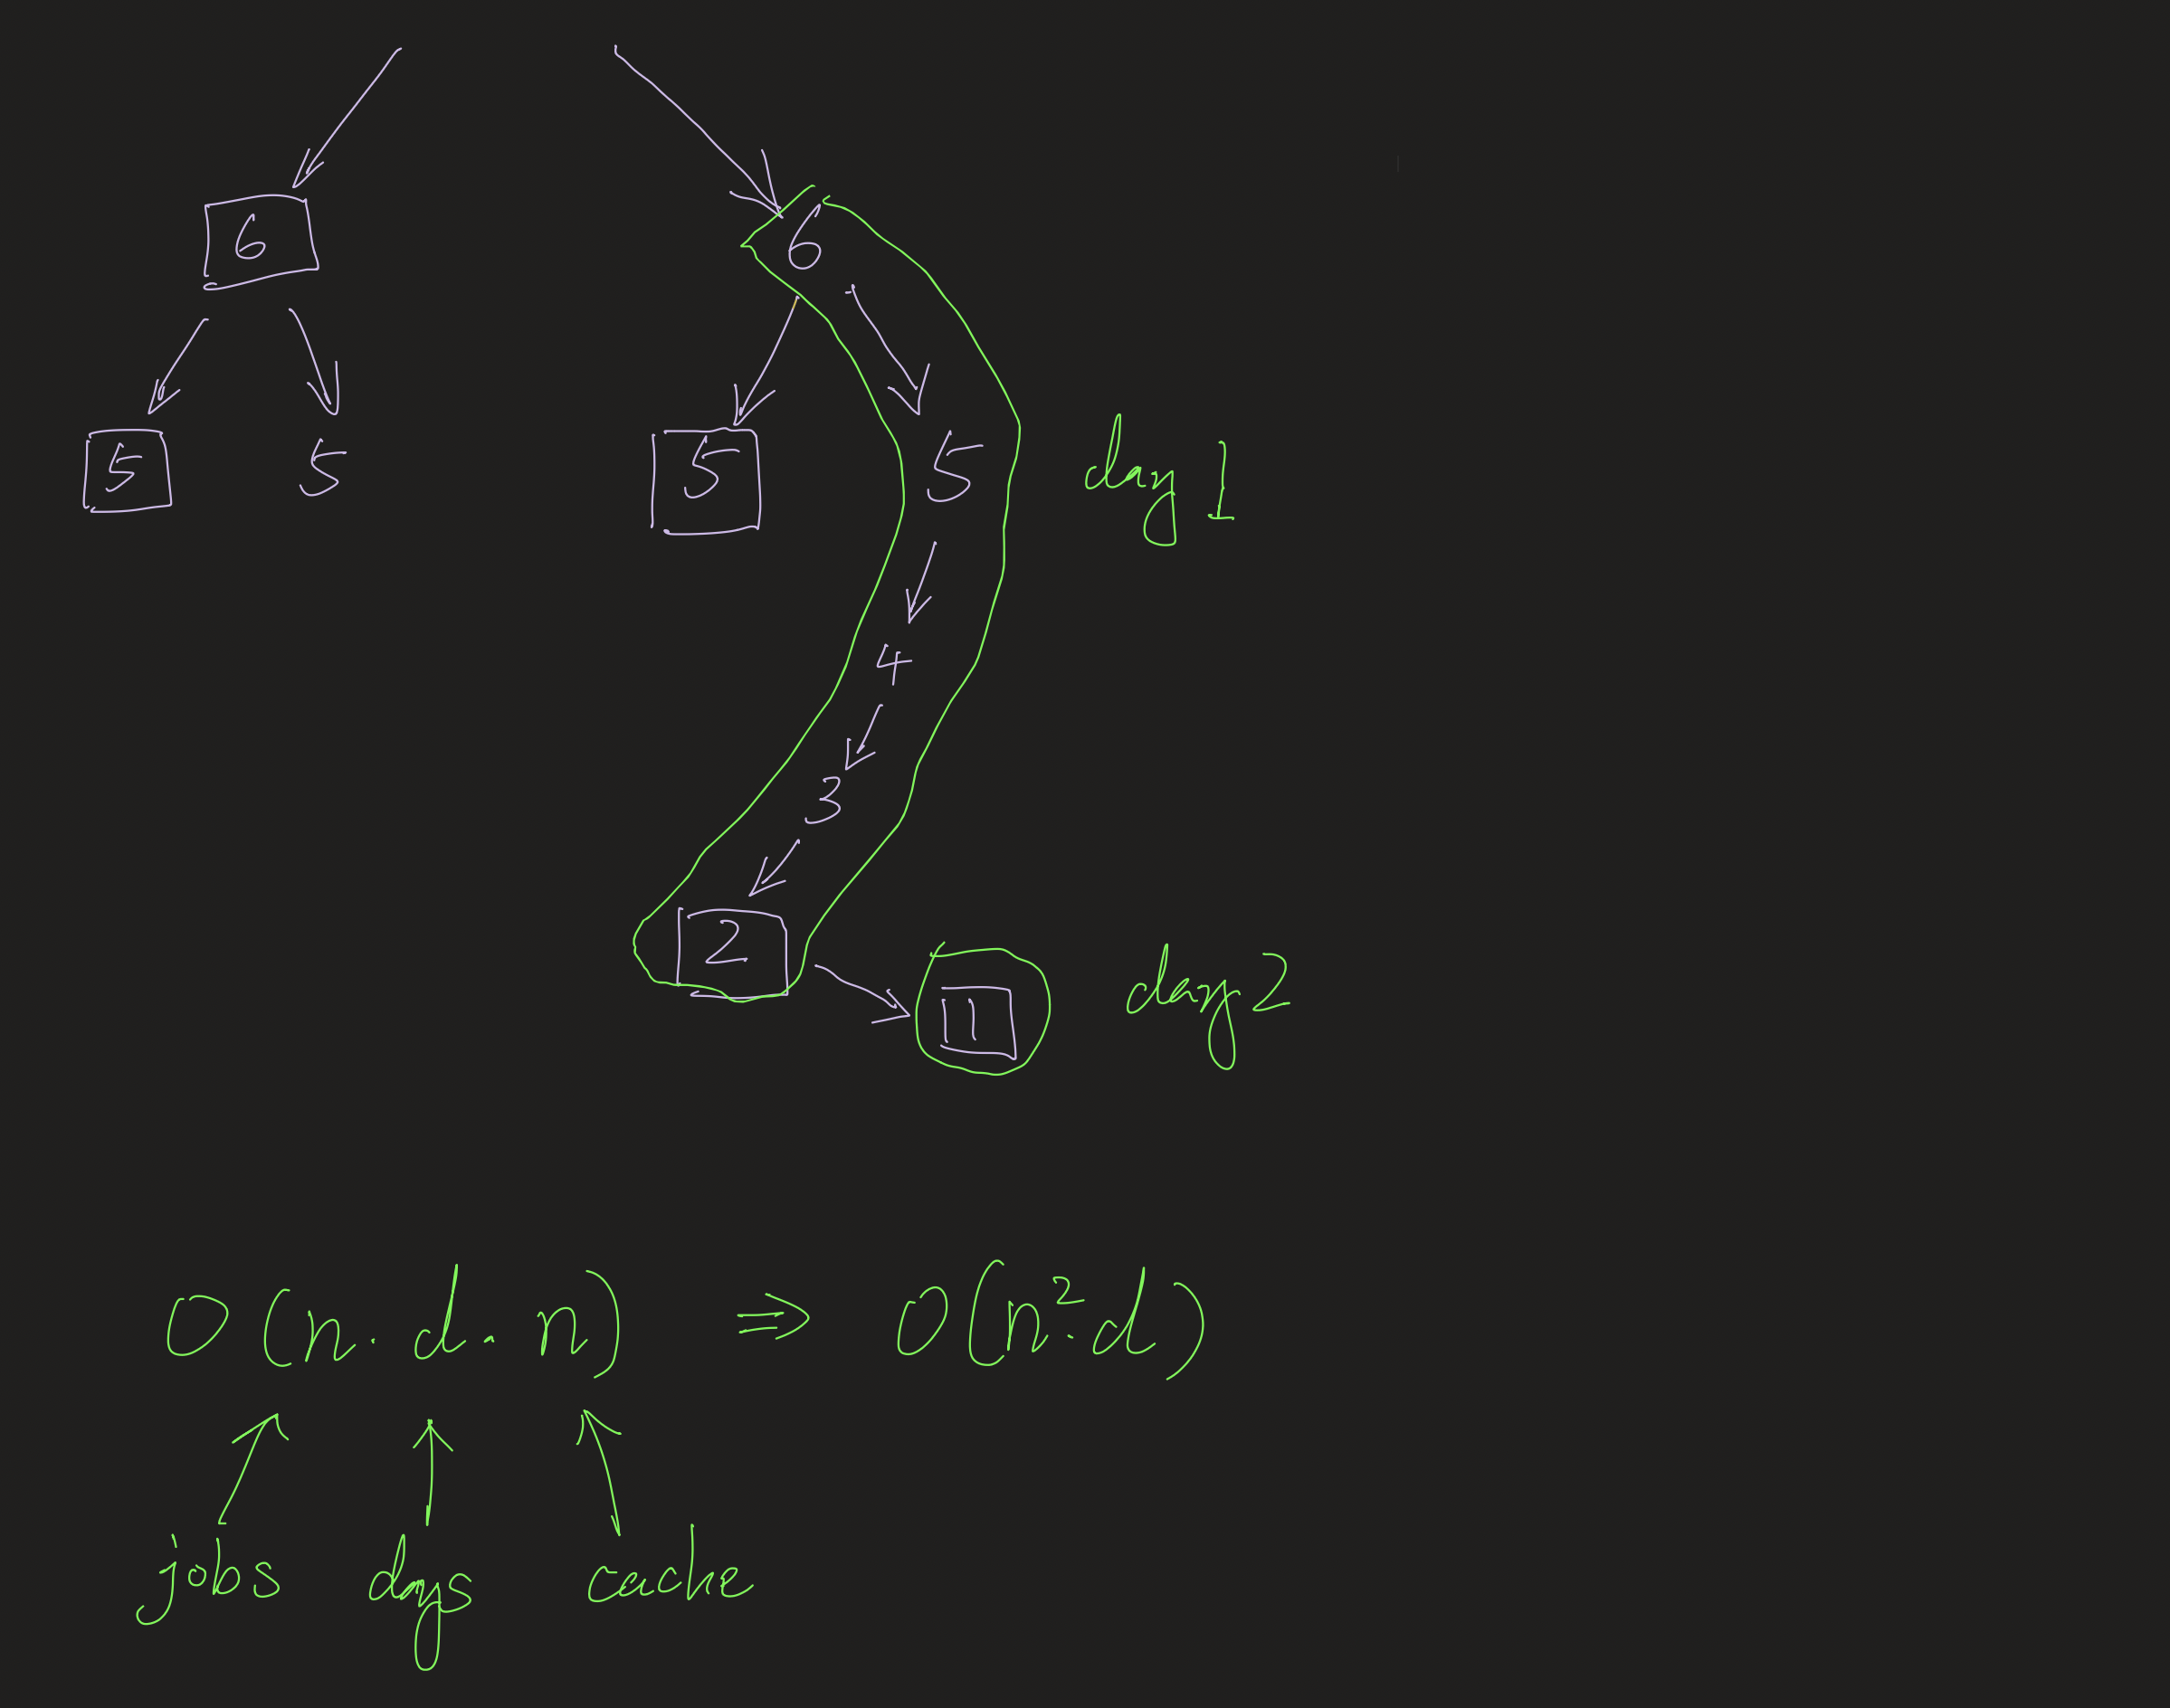 6 6
5 5 5 5 day 1
4
3
2
1 day 2
O(n · d · n) ⇒ O(n² · d)
jobs days cache